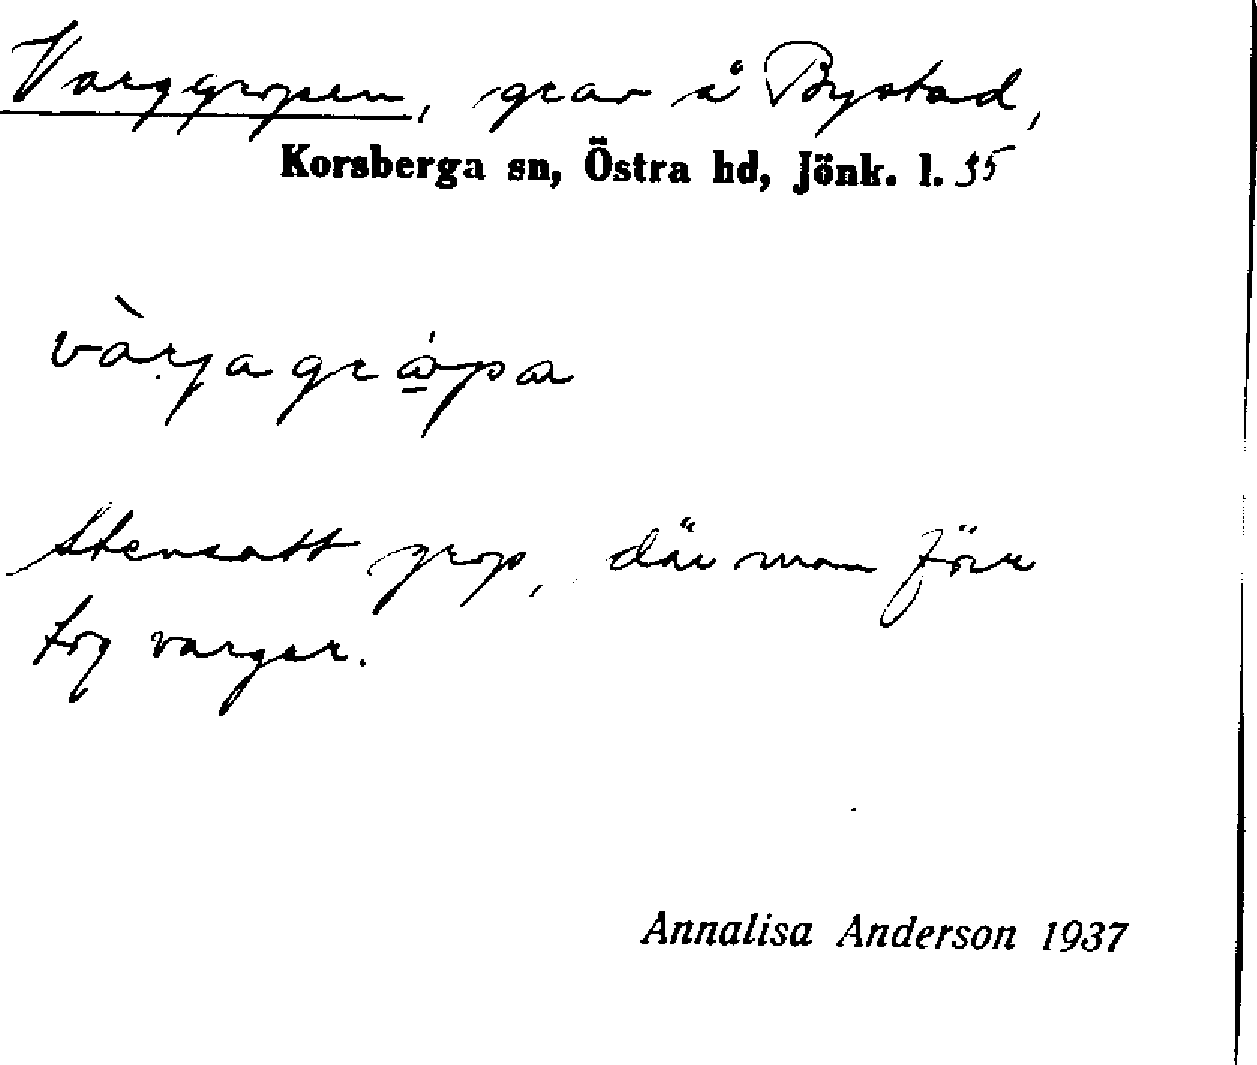 Varggropen, grav å Bystad,
Korsberga sn, Östra hd, Jönk. l. 35
vàrjagrápa
Stensatt grop, där man förr
tog vargar.
Annalisa Anderson 1937